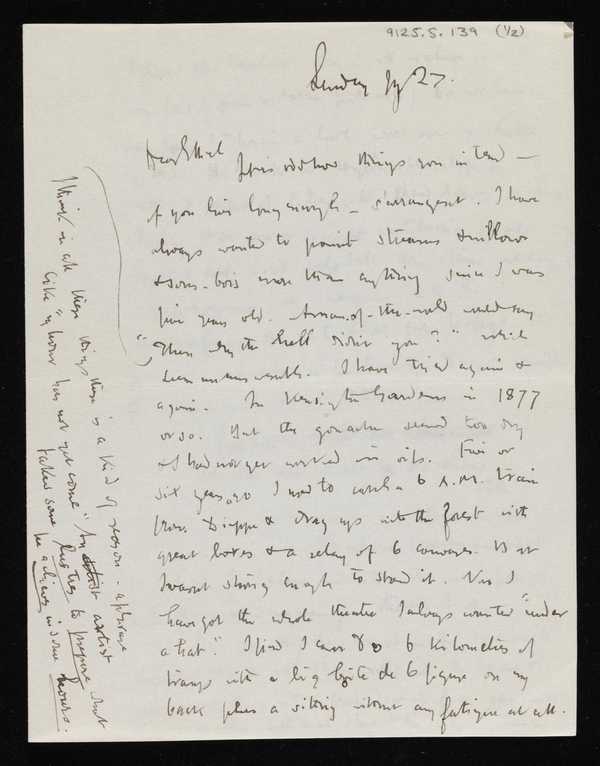 9125.5.139 (1/2)
Sunday 27.
Dear Ethel
It is odd how things you intend —
if you live long enough — s'arrangent. I have
always wanted to paint streams & willows
& sous-bois more than anything since I was
five years old. A man-of-the-world would say
"Then why the hell didn't you?" which
seems unanswerable. I have tried again &
again. In Kensington Gardens in 1877
or so. But the gouache seemed too dry
& I had not yet worked in oils. Five or
six years ago I used to catch a 6 A.M. train
from Dieppe & drag up into the forest with
great boxes & a relay of 6 canvases. But
I wasn't strong enough to stand it. Now I
have got the whole theatre I always wanted "under
a hat". I find I can do 6 kilometres of
tramp with a big boîte de 6 figure on my
back plus a sitting without any fatigue at all.
I think in all these things there is a kind of reason - a phrase
like "my hour has not yet come". An artist
takes some lustres to prepare what
he achieves in some hours.